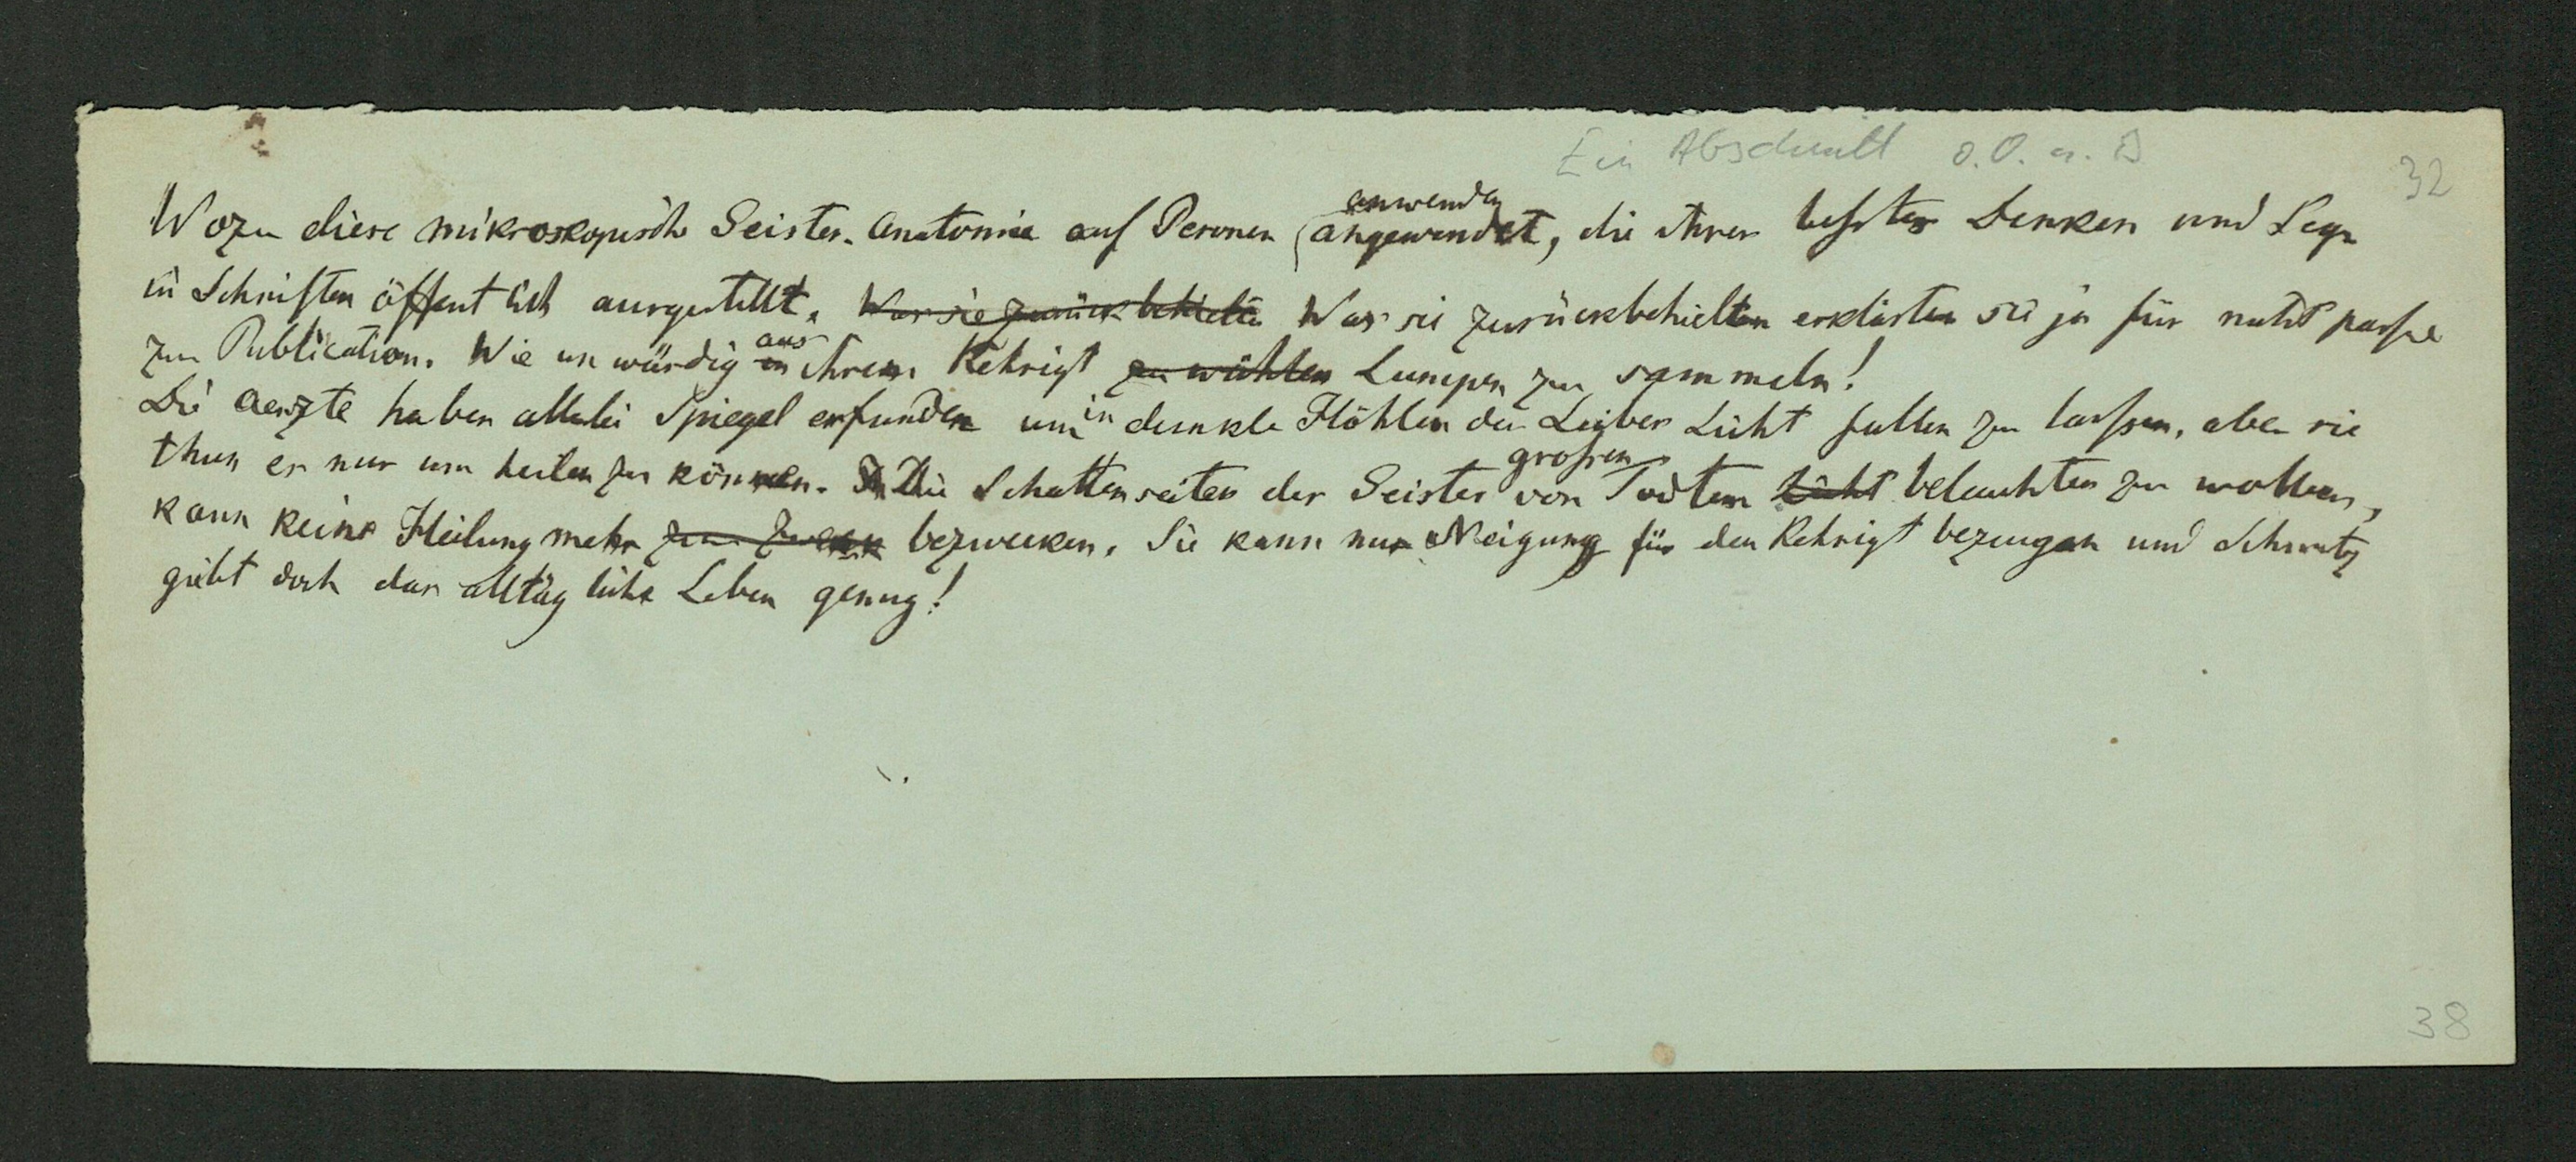 Ein Abschnitt o. O. u. D
32
anwenden
Wozu diese mikroskopische Geister-Anatomie auf Personen (angewendet, die ihrer besstes Denken und
in Schriften öffentlich ausgestellt. Was sie zurückbehielten Was sie zurückbehielten erklärten sie ja für nicht passend
aus
zur Publication. Wie unwürdig in ihrem Kehrigt zu wühlen Lumpen zu sammeln!
in
Die Aerzte haben allerlei Spiegel erfunden um dunkle Höhlen der Leiber Licht fallen zu lassen, aber sie
grossen
thun es nur um heilen zu können. Die Schattenseiten der Geister von Todten Licht beleuchten zu wollen,
kann keine Heilung mehr zum Zweck bezwecken. Sie kann nur Neigung für den Kehrigt bezeugen und Schmutz
giebt doch das alltägliche Leben genug!
38